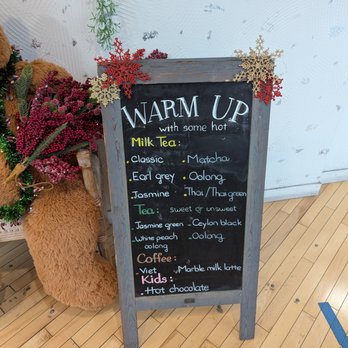 WARM UP
with some hot
Milk Tea:
• Classic • Matcha
• Earl grey • Oolong
• Jasmine • Thai/Thai green
Tea: sweet or unsweet
• Jasmine green • Ceylon black
• White peach oolong • Oolong
Coffee:
• Viet • Marble milk latte
Kids:
• Hot chocolate